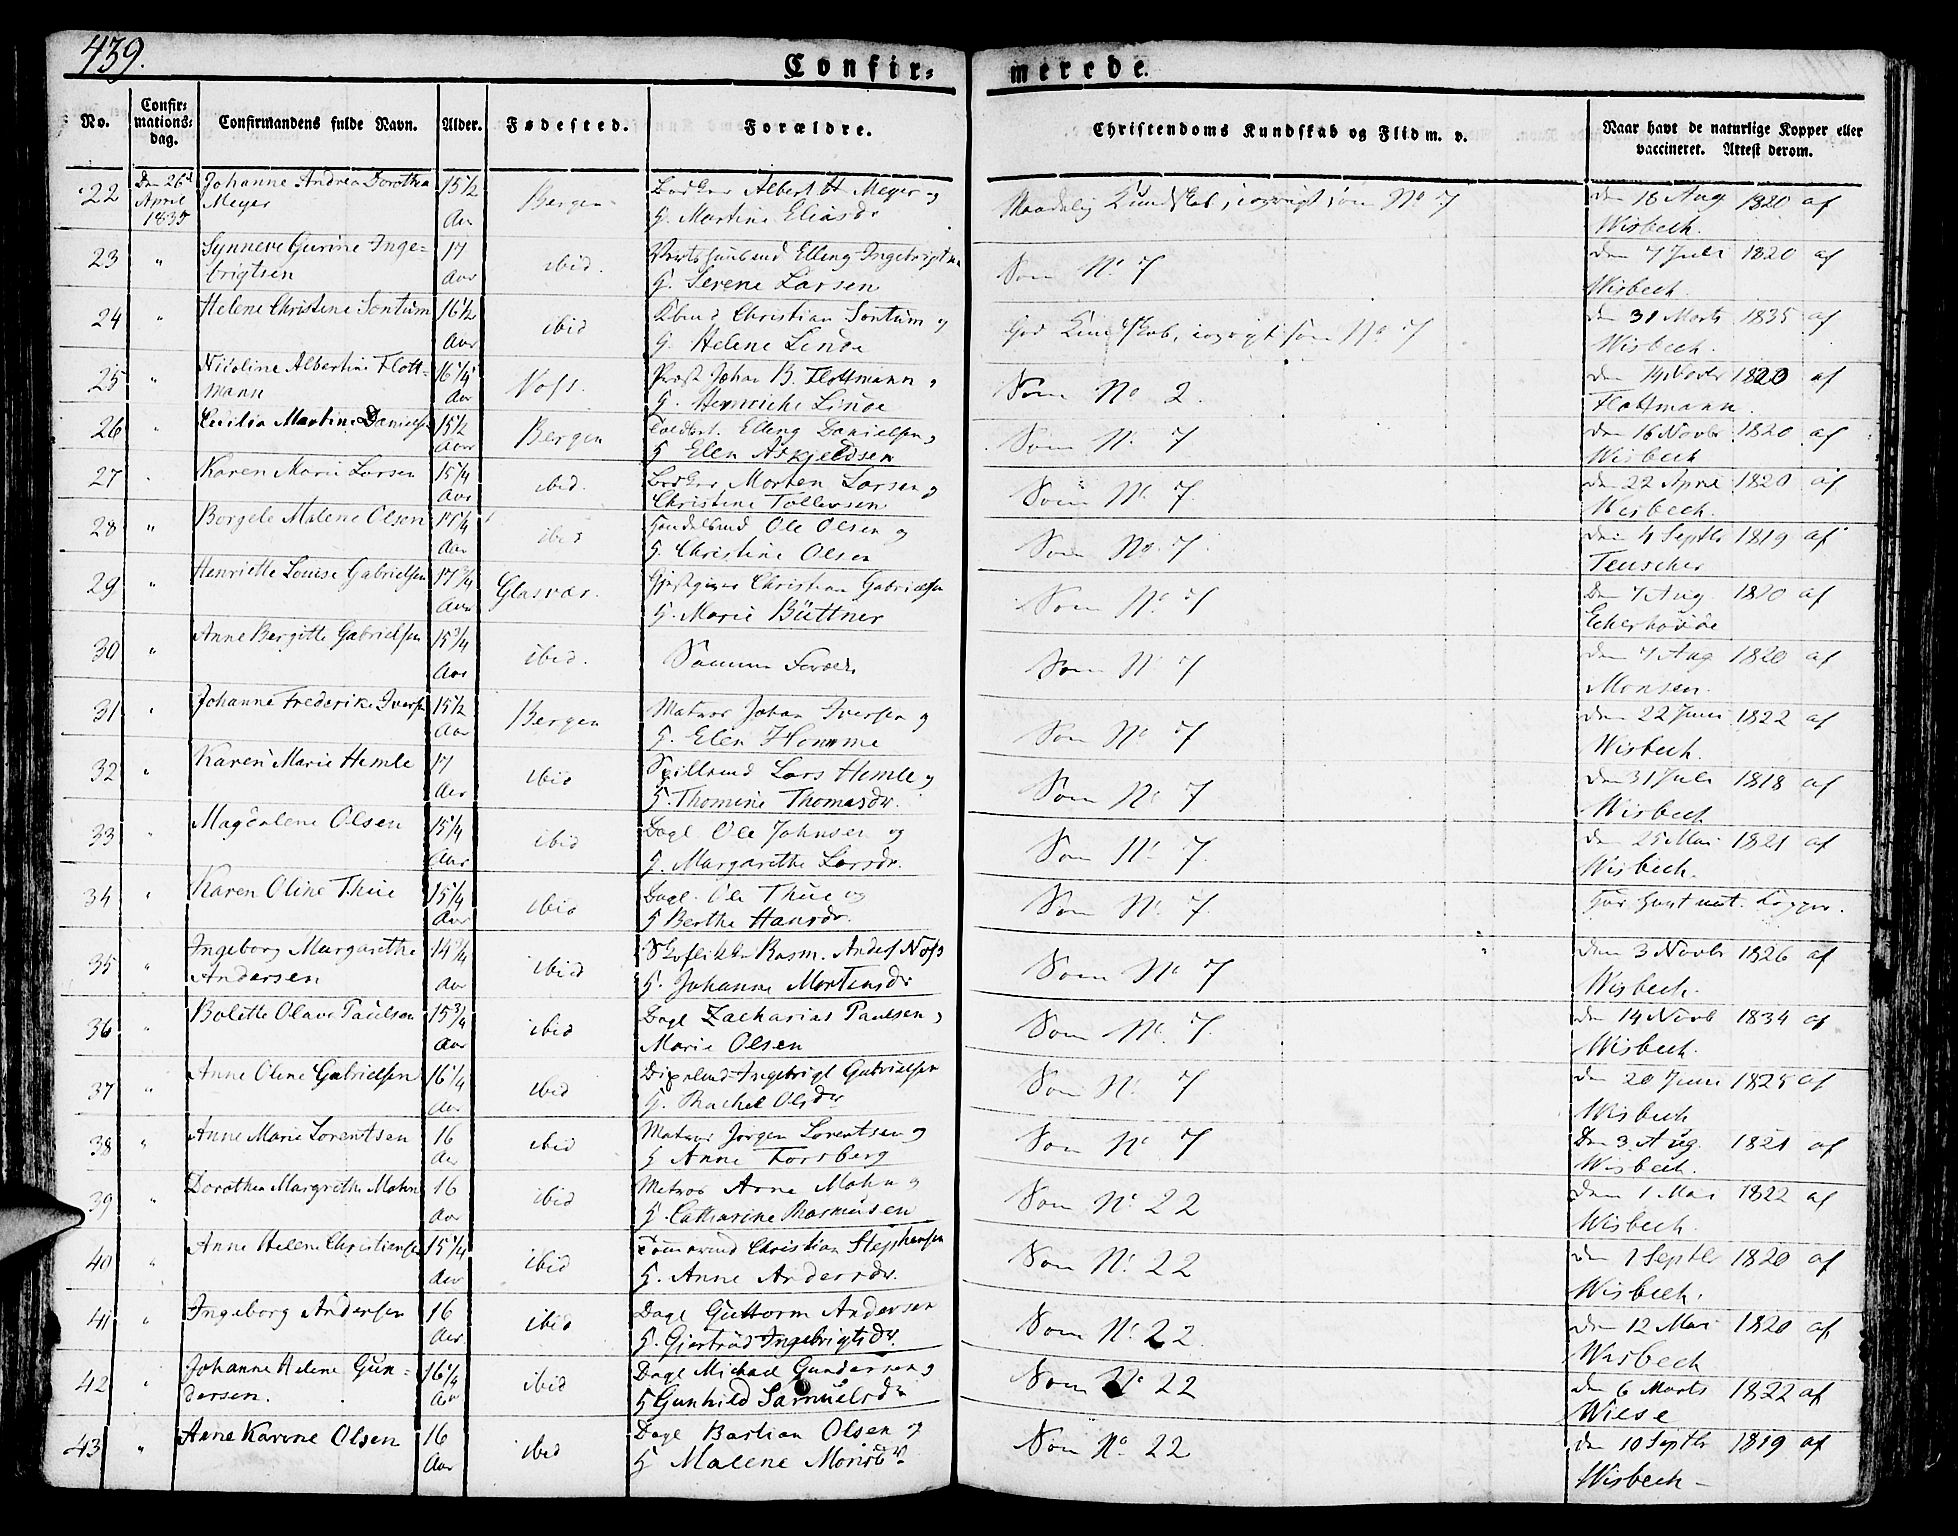 439.
Confir= merede.
No.
Confir=
mations=
dag.
Confirmandens fulde Navn.
Alder.
Fødested.
Forældre.
Christendoms Kundskab og Flid m. v.
Naar havt de naturlige Kopper eller
vaccineret. Attest derom.
22 Den 26d Johanne Andrea Dorothea 15 1/2 Bergen Albert H Meyer og Maadelig Kundskab, iøvrigt som No 7 den 18 Aug 1820 af
April Meyer Aar H. Martine Eliasdr Wisbech.
1835
23 " Synneve Gurine Inge= 17 ibid. Elling Ingebrigtsen Som No 7 den 7 Juli 1820 af
brigtsen Aar H. Serene Larsen Wisbech.
24 " Helene Christine Sontum 16 1/2 ibid Christian Sontum og God Kundskab, iøvrigt som No 7 den 31 Marts 1835 af
Aar H. Helene Linde Wisbech.
25 " Nicoline Albertine Flott= 16 1/4 Voss. Præst Johan B. Flottmann, Som No 2. den 14 Novbr 1820 af
mann Aar H. Henriche Linde Flottmann.
26 " Cecilia Martine Danielsen 15 1/2 Bergen Elling Danielsen, Som No 7 den 16 Novbr 1820 af
Aar H Elen Askjeldsen Wisbech
27 " Karen Marie Larsen 15 1/4 ibid. Morten Larsen og Som No 7. den 22 April 1820 af
Aar Christine Tollevsen Wisbech.
28 " Borgele Malene Olsen 17 1/4 ibid Ole Olsen og Som No. 7. den 4 Septbr 1819 af
Aar H. Christine Olsen Teuscher
29 " Henriette Louise Gabrielsen 17 3/4 Glasvær. Gjestgiver Christian Gabrielsen Som No 7 Den 7 Aug 1820 af
Aar H. Marie Büttner
30 " Anne Bergitte Gabrielsen 15 3/4 ibid. Samme Foræld. Som No 7 den 7 Aug 1820 af
Aar Monsen.
31 " Johanne Frederike Iversen 15 1/2 Bergen Matros Johan Iversen og Som No 7 den 22 Juni 1822 af
Aar H. Elen Homme Wisbech.
32 " Karen Marie Hemle 17 ibid Lars Hemle og Som No 7 den 31 Juli 1818 af
Aar H. Thomine Thomasdr. Wisbech
33 " Magdalene Olsen 15 1/4 ibid Dagl Ole Johnsen og Som No 7. den 25 Mai 1821 af
Aar H. Margarethe Larsdr. Wisbech.
34 " Karen Oline Thue 15 1/4 ibid Dagl. Ole Thue og Som No 7. Har havt nat. Kopper.
Aar H Berthe Hansdr.
35 " Ingeborg Margarethe 14 3/4 ibid Skoflikker Rasm. Anders Som No 7 den 3 Novbr 1826 af
Andersen Aar H. Johanne Mortensdr Wisbech.
36 " Bolette Olava Paulsen 15 3/4 ibid Dagl Zacharias Paulsen, Som No. 7. den 14 Novb 1834 af
Aar Marie Olsen Wisbech.
37 " Anne Oline Gabrielsen 16 1/4 ibid Ingebrigt Gabrielsen Som No 7 den 20 Juni 1825 af
Aar H. Rachel Olsdr Wisbech
38 " Anne Marie Lorentsen 16 ibid Matros Jørgen Lorentsen og Som No 7 Den 3 Aug. 1821 af
Aar H Anne Forsberg Wisbech.
39 " Dorothea Margrethe Mohn 16 ibid Matros Arne Mohn og Som No 22 den 1 Mai 1822 af
Aar H. Catharine Rasmusen Wisbech.
40 " Anne Helene Christiansen 15 1/4 ibid Tømmermd Christian Stephensen Som No 22 den 1 Septbr 1820 af
Aar H. Anne Andersdr. Wisbech.
41 " Ingeborg Andersen 16 ibid Dagl Guttorm Andersen Som No 22. den 12 Mai 1820 af
Aar H. Gjertrud Ingebrigtsdr. Wisbech
42 " Johanne Helene Gun= 16 1/4 ibid Dagl Michael Gundersen og Som No 22 den 6 Marts 1822 af
dersen. Aar H Gunhild Samuelsdr Wiese
43 " Anne Karine Olsen 16 ibid Dagl Bastian Olsen og Som No 22 den 10 Septbr 1819 af
Aar H Malene Monsdr Wisbech